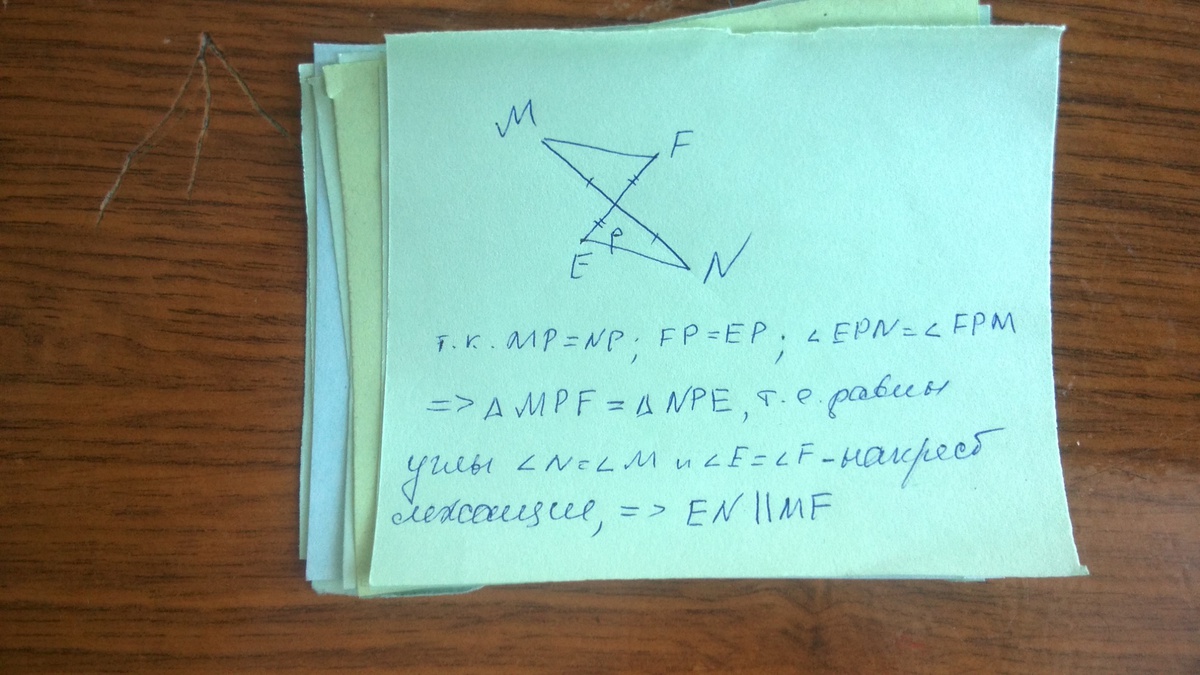 M
F
P
E
N
т.к. MP=NP; FP=EP; ∠EPN=∠FPM
=> Δ MPF = Δ NPE, т.е. равны
углы ∠N=∠M и ∠E=∠F - накрест
лежащие, => EN || MF